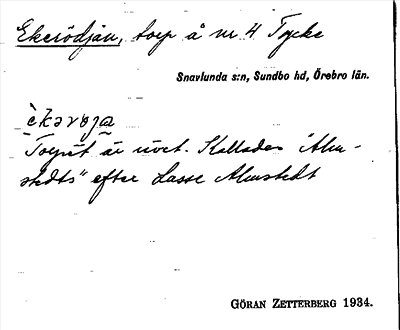 Ekerödjan, torp å nr 4 Tycke
Snavlunda s:n, Sundbo hd, Örebro län.
èkərøja
Torpet är rivet. Kallades "Alm-
stedts" efter Lasse Almstedt
GÖRAN ZETTERBERG 1934.